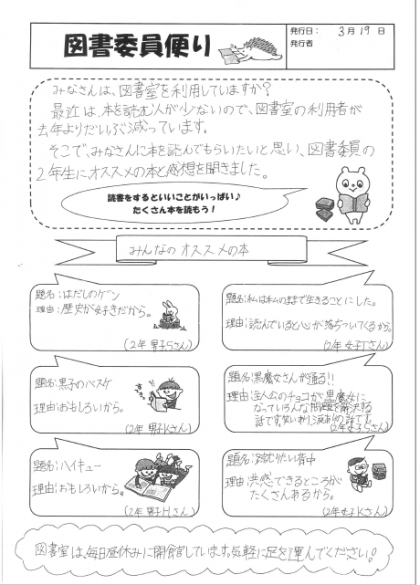 図書委員便り
発行日： 3月19日
発行者
みなさんは、図書室を利用していますか？
最近は、本を読む人が少ないので、図書室の利用者が
去年よりだいぶ減っています。
そこで、みなさんに本を読んでもらいたいと思い、図書委員の
2年生にオススメの本と感想を聞きました。
読書をするといいことがいっぱい♪
たくさん本を読もう！
みんなのオススメの本
題名：はだしのゲン
理由：歴史が好きだから。
(2年 男子Sさん)
題名：私は私のままで生きることにした。
理由：読んでいると心が落ちついてくるから。
(2年 女子Tさん)
題名：黒子のバスケ
理由：おもしろいから。
(2年 男子Kさん)
題名：黒魔女さんが通る!!
理由：主人公のチョコが黒魔女に
なっていろんな問題を解決する
話で
(2年 女子Sさん)
題名：ハイキュー
理由：おもしろいから。
(2年 男子Hさん)
題名：蹴りたい背中
理由：共感できるところが
たくさんあるから。
(2年 女子Kさん)
図書室は、毎日昼休みに開館しています。気軽に足を運んでください！